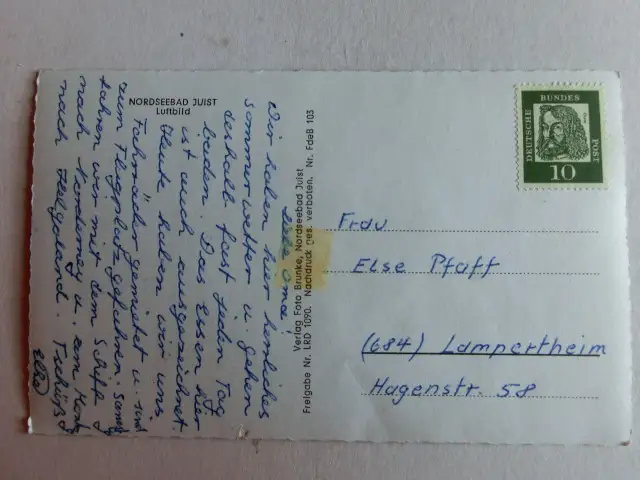 NORDSEEBAD JUIST
Luftbild
Liebe Oma!
Wir haben hier herrliches
Sommerwetter u. gehen
deshalb fast jeden Tag
baden. Das Essen hier
ist auch ausgezeichnet.
Heute haben wir uns
Fahrräder gemietet u. sind
zum Flugplatz gefahren.
fahren wir mit dem Schiff
nach Norderney u. am
nach Helgoland. Tschüß
Elke
Verlag Foto Brunke, Nordseebad Juist
Freigabe Nr. LRD 1090. Nachdruck ges. verboten. Nr. FdeB 103
DEUTSCHE BUNDES POST
10
Frau
Else Pfaff
(684) Lampertheim
Hagenstr. 58